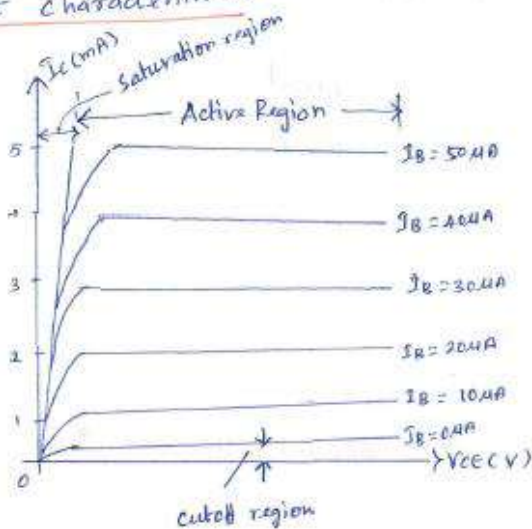 Characteri
Ic (mA)
Saturation region
Active Region
5
IB = 50 µA
IB = 40 µA
3
IB = 30 µA
2
IB = 20 µA
1
IB = 10 µA
IB = 0 µA
0
VCE (V)
cutoff region